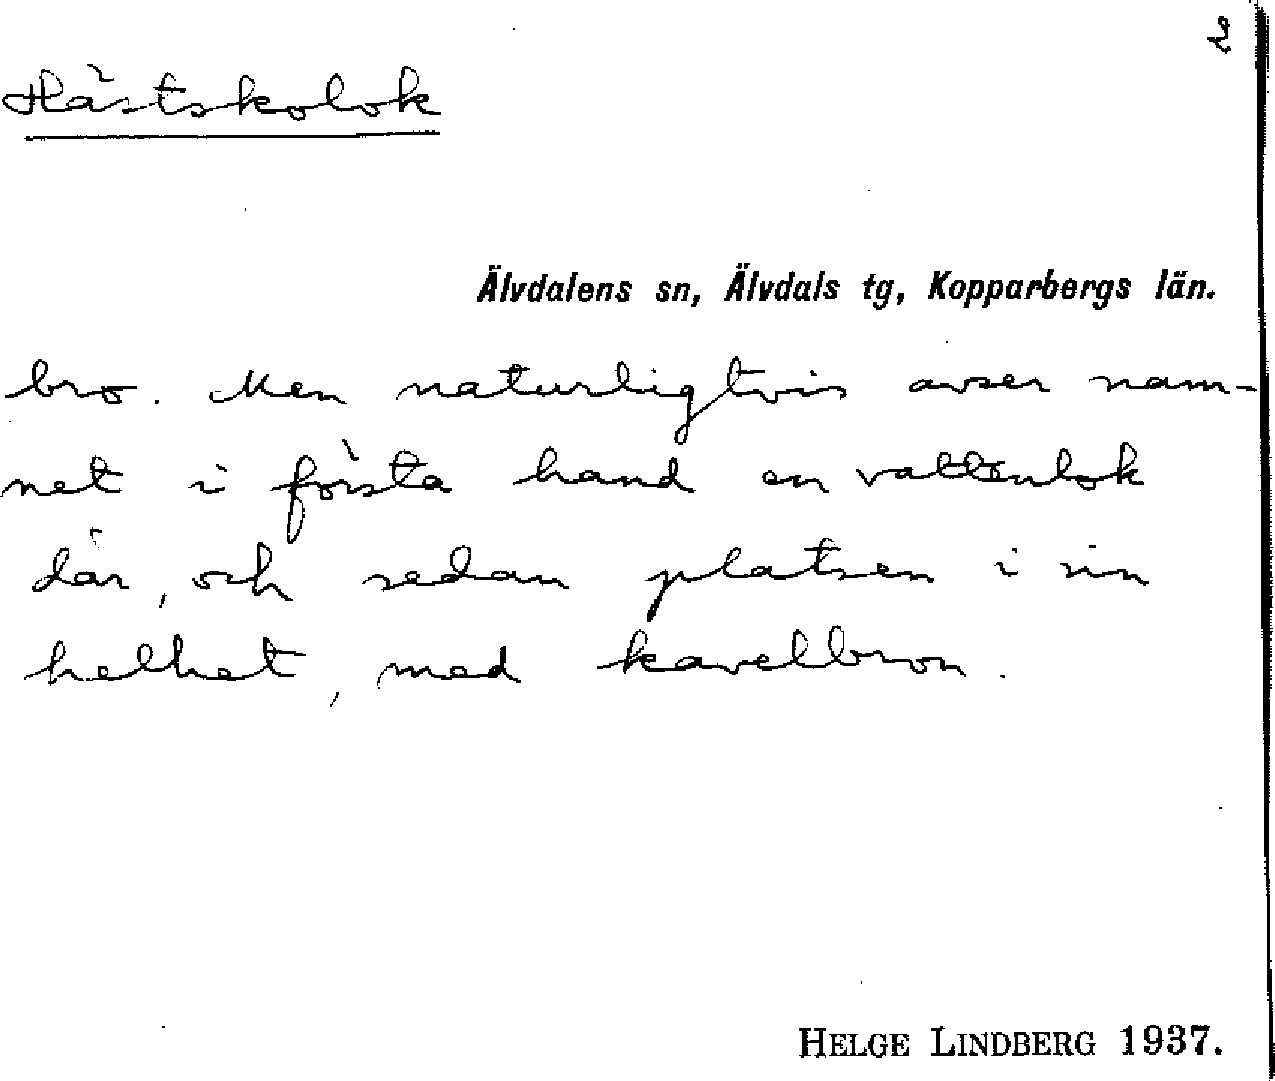 2
Hästskolok
Älvdalens sn, Älvdals tg, Kopparbergs län.
bro. Men naturligtvis avser nam-
net i första hand en vattenlok
där, och sedan platsen i sin
helhet, med kavelbron.
HELGE LINDBERG 1937.